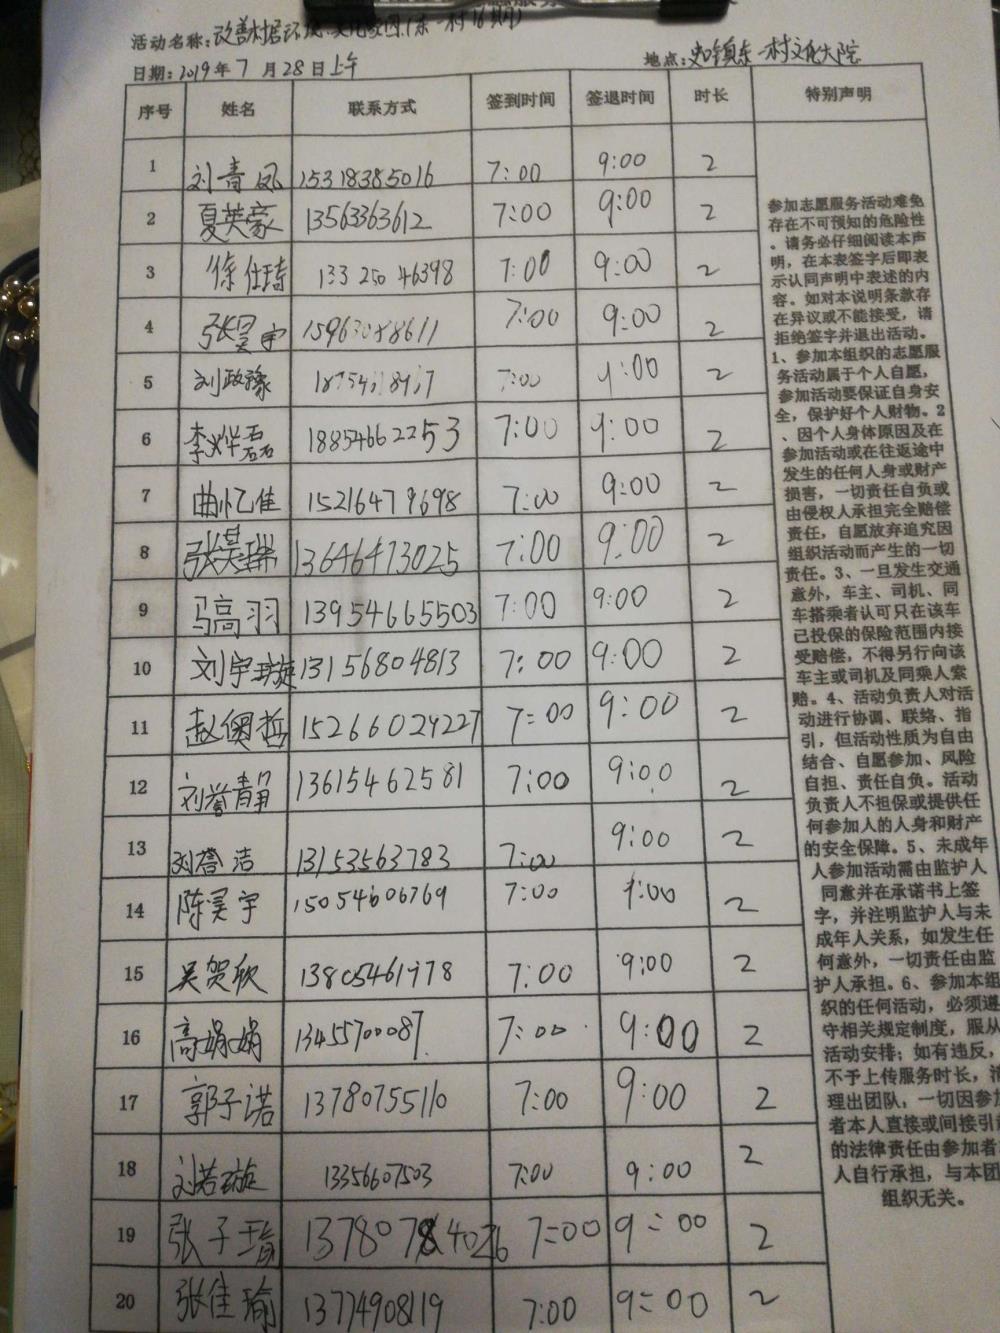 活动名称:改善村居环境、文化家园(东一村16期)
日期:2019年7月28日上午 地点:史口镇东一村文化大院
序号 姓名 联系方式 签到时间 签退时间 时长 特别声明
1 刘青凤 15318385016 7:00 9:00 2
2 夏英豪 13563363612 7:00 9:00 2
3 徐仕琦 133 250 46398 7:00 9:00 2
4 张昊宇 7:00 9:00 2
5 刘政豫 7:00 9:00 2
6 李烨磊 18854662253 7:00 9:00 2
7 曲忆佳 15216479698 7:00 9:00 2
8 张昊琳 13646473025 7:00 9:00 2
9 马高羽 13954665503 7:00 9:00 2
10 刘宇璇 13156804813 7:00 9:00 2
11 赵奥哲 15266029227 7:00 9:00 2
12 刘誉静 13615462581 7:00 9:00 2
13 刘誉洁 13153563783 7:00 9:00 2
14 陈昊宇 15054606769 7:00 9:00 2
15 吴贺欣 13805461978 7:00 9:00 2
16 高娟娟 13455700087 7:00 9:00 2
17 郭子诺 13780755110 7:00 9:00 2
18 刘若璇 13356607503 7:00 9:00 2
19 张子瑄 7:00 9:00 2
20 张佳瑜 13774908119 7:00 9:00 2
参加志愿服务活动难免
存在不可预知的危险性
。请务必仔细阅读本声
明，在本表签字后即表
示认同声明中表述的内
容。如对本说明条款存
在异议或不能接受，请
拒绝签字并退出活动。
1、参加本组织的志愿服
务活动属于个人自愿，
参加活动要保证自身安
全，保护好个人财物。2
、因个人身体原因及在
参加活动或在往返途中
发生的任何人身或财产
损害，一切责任自负或
由侵权人承担完全赔偿
责任，自愿放弃追究因
组织活动而产生的一切
责任。3、一旦发生交通
意外，车主、司机、同
车搭乘者认可只在该车
已投保的保险范围内接
受赔偿，不得另行向该
车主或司机及同乘人索
赔。4、活动负责人对活
动进行协调、联络、指
引，但活动性质为自由
结合、自愿参加、风险
自担、责任自负。活动
负责人不担保或提供任
何参加人的人身和财产
的安全保障。5、未成年
人参加活动需由监护人
同意并在承诺书上签
字，并注明监护人与未
成年人关系，如发生任
何意外，一切责任由监
护人承担。6、参加本组
织的任何活动，必须遵
守相关规定制度，服从
活动安排；如有违反，
不予上传服务时长，清
理出团队，一切因参加
者本人直接或间接引起
的法律责任由参加者本
人自行承担，与本团
组织无关。